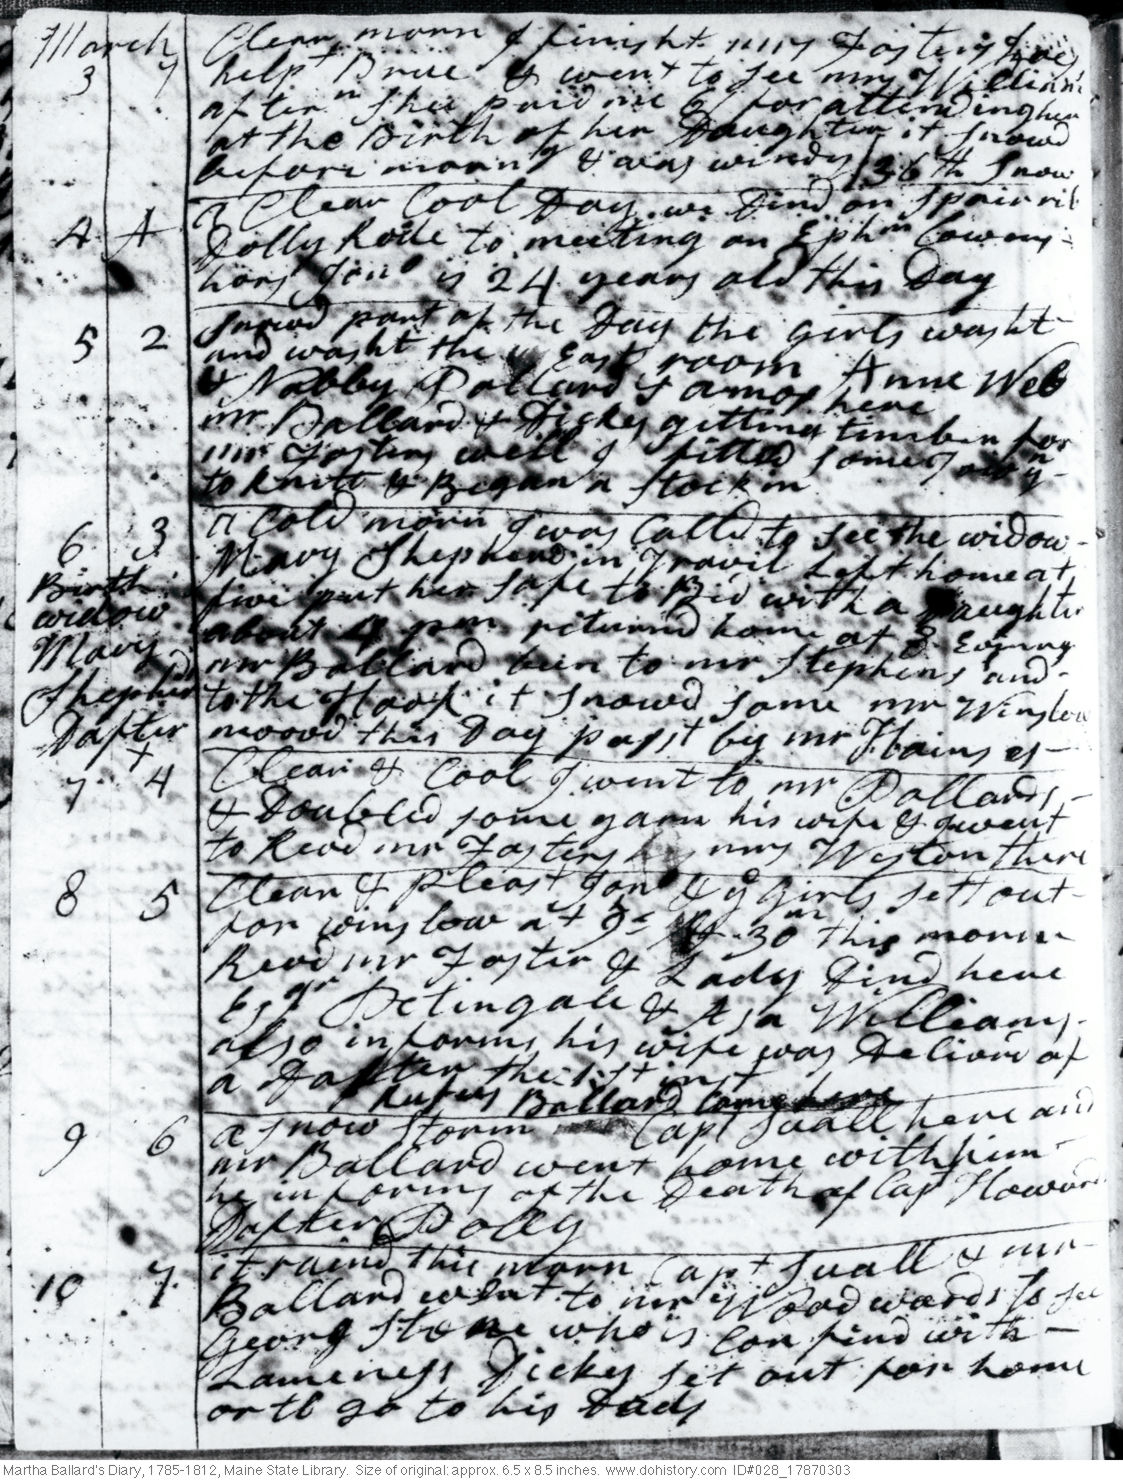 March
3 7 Clear morn I finisht mrs Fosters
helpt Brue & went to see mrs Williams
aftern Shee paid me 6/ for attending her
at the Birth of her Daughter it Snowd
before morng & was windy 36th Snow
4 A a Clear Cool Day we Dind on Spairrib
Dolly Rode to meeting on Ephm Cowens
hors Jona is 24 years old this Day
5 2 Snowd part of the Day the girls washt
and washt the East room Anne Web
& Nabby Pollard & amos here
mr Ballard & Dicky getting timber for
mr Fosters well I fitted some
to knitt & Began a Stockin
6 3 a Cold morn I was Calld to see the widow
Birth
widow
Mary
Shepherd
Dafter
Mary Shepherd in Travil Left home at
five put her safe to Bed with a Daughter
about 4 pm returnd home at 8 Evinng
mr Ballard been to mr Stephens and
to the Hook it Snowd some mr Winslow
moovd this Day past by mr Hains es
7 4 Clear & Cool I went to mr Pollards
& Doubled some yarn his wife & I went
to Revd mr Fosters mrs Weston there
8 5 Clear & pleast Jona & ye girls sett out
for winslow at 9 & 30 m this morn
Revd mr Foster & Lady Dind here
Esqr Petingale & Asa Williams
also informs his wife was Deliverd of
a Dafter the 1st inst
Rufus Ballard Came here
9 6 a snow storm Capt Suall here and
mr Ballard went home with him
he informs of the Death of Cap Howard
Dafter Dolly
10 7 it raind this morn Capt Suall & mr
Ballard went to mr Woodwards to see
Georg Stone who is Confind with
Lameness Dicky set out for home
or to go to his Dads
Martha Ballard's Diary, 1785-1812, Maine State Library. Size of original: approx. 6.5 x 8.5 inches. www.dohistory.com ID#028_17870303